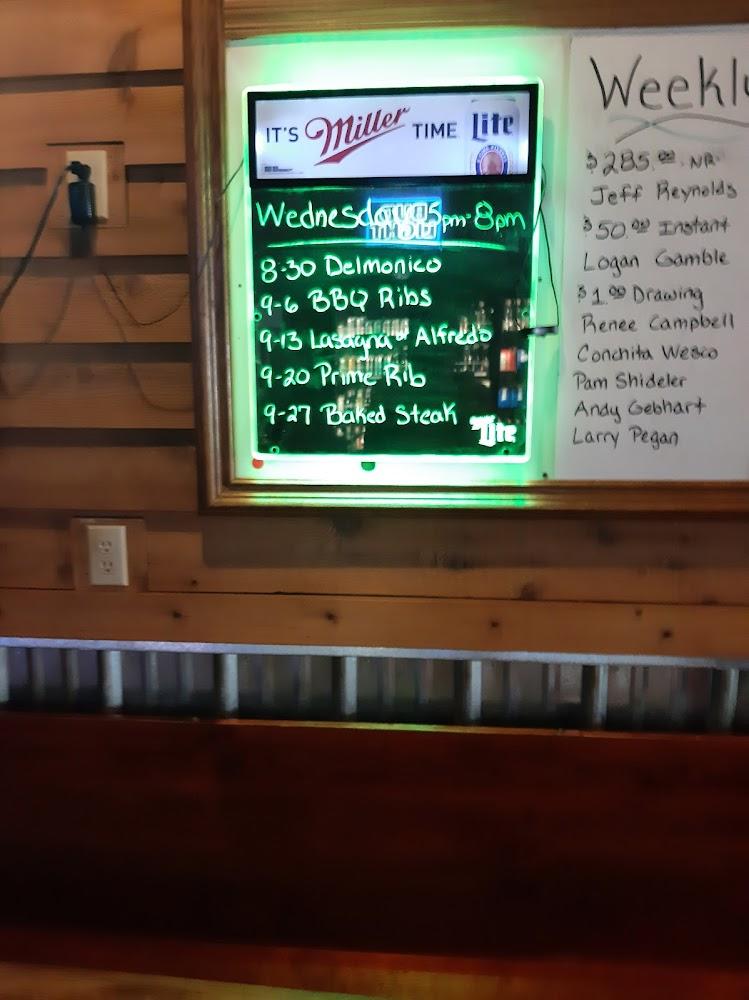 IT'S Miller TIME Lite
Wednesday 5pm-8pm
8-30 Delmonico
9-6 BBQ Ribs
9-13 Lasagna or Alfredo
9-20 Prime Rib
9-27 Baked Steak
Lite
Weekly
$285.00 NR
Jeff Reynolds
$50.00 Instant
Logan Gamble
$1.00 Drawing
Renee Campbell
Conchita Wesco
Pam Shideler
Andy Gebhart
Larry Pegan